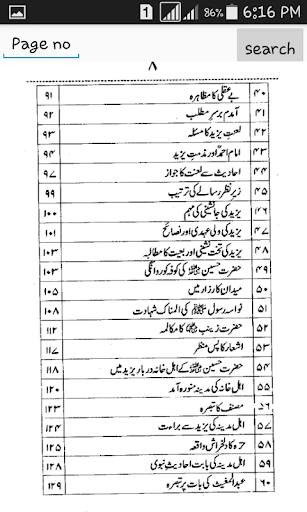 1 86% 6:16 PM
Page no search
۸
۴۰ بے عقلی کا مظاہرہ ۹۱
۴۱ آمدم برسر مطلب ۹۲
۴۲ لعنتِ یزید کا مسئلہ ۹۳
۴۳ امام احمد اور مذمتِ یزید ۹۴
۴۴ احادیث سے لعنت کا جواز ۹۷
۴۵ زیر نظر رسالے کی ترتیب ۹۹
۴۶ یزید کی جانشینی کی مہم ۱۰۰
۴۷ یزید کی ولی عہدی اور نصائح ۱۰۱
۴۸ یزید کی تخت نشینی اور بیعت کا مطالبہ ۱۰۳
۴۹ حضرت حسین کی کوفہ کو روانگی ۱۰۳
۵۰ میدان کارزار میں ۱۰۵
۵۱ نواسہ رسول کی المناک شہادت ۱۰۸
۵۲ حضرت زینب کا مکالمہ ۱۱۲
۵۳ اشعار کا پس منظر ۱۱۷
۵۴ حضرت حسین کے اہل خانہ دربار یزید میں ۱۱۸
۵۵ اہل خانہ کی مدینہ منورہ آمد ۱۲۰
۵۶ مصنف کا تبصرہ ۱۲۳
۵۷ اہل مدینہ کی یزید سے براءت ۱۲۴
۵۸ حرہ کا دلخراش واقعہ ۱۲۵
۵۹ اہل مدینہ کی بابت احادیث نبوی ۱۲۸
۶۰ عبدالمغیث کی بات پر تبصرہ ۱۲۹